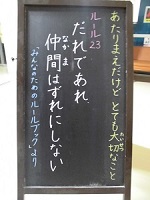 あたりまえだけど とても大切なこと
たいせつ
ルール23
だれであれ、
なかま
仲間はずれにしない
「みんなのためのルールブック」より